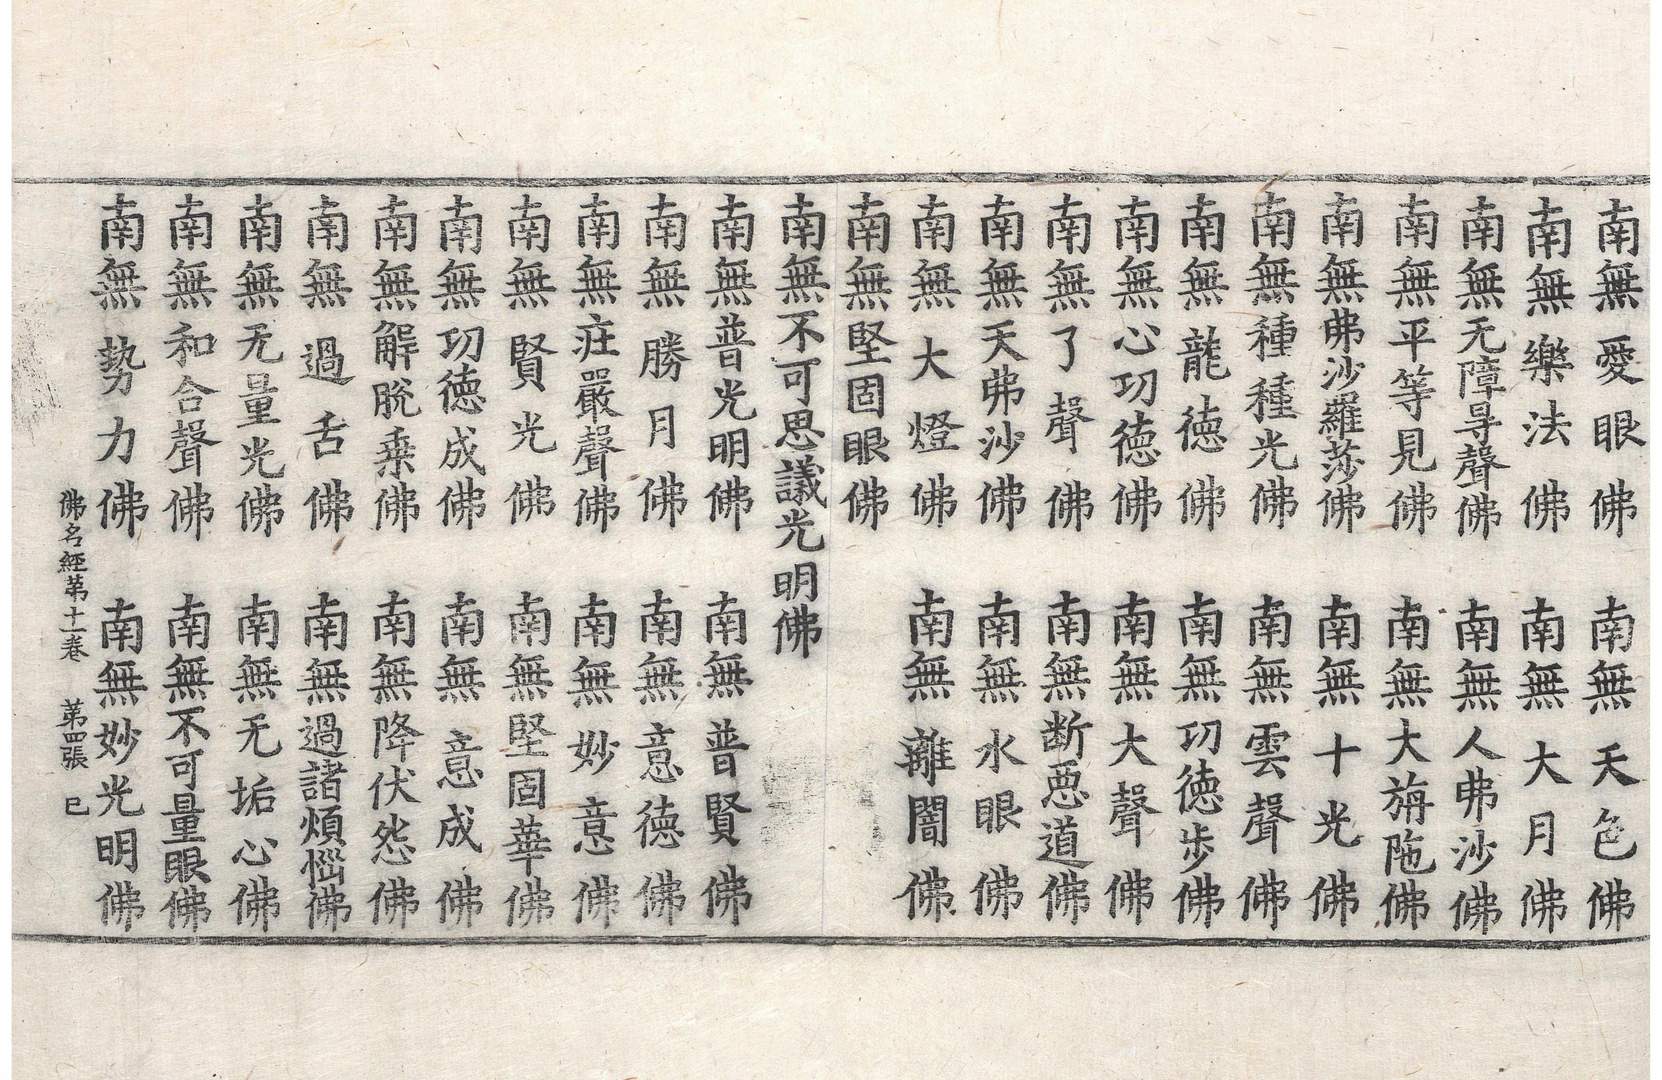 南無愛眼佛　南無天色佛
南無樂法佛　南無大月佛
南無无障㝵聲佛　南無人弗沙佛
南無平等見佛　南無大旃陁佛
南無弗沙羅莎佛　南無十光佛
南無種種光佛　南無雲聲佛
南無龍德佛　南無功德步佛
南無心功德佛　南無大聲佛
南無了聲佛　南無断惡道佛
南無天弗沙佛　南無水眼佛
南無大燈佛　南無離闇佛
南無堅固眼佛
南無不可思議光明佛
南無普光明佛　南無普賢佛
南無勝月佛　南無意德佛
南無莊嚴聲佛　南無妙意佛
南無賢光佛　南無堅固華佛
南無功德成佛　南無意成佛
南無解脫乗佛　南無降伏怨佛
南無過舌佛　南無過諸煩惱佛
南無无量光佛　南無无垢心佛
南無和合聲佛　南無不可量眼佛
南無勢力佛　南無妙光明佛
佛名經第十一卷　第四張　巳